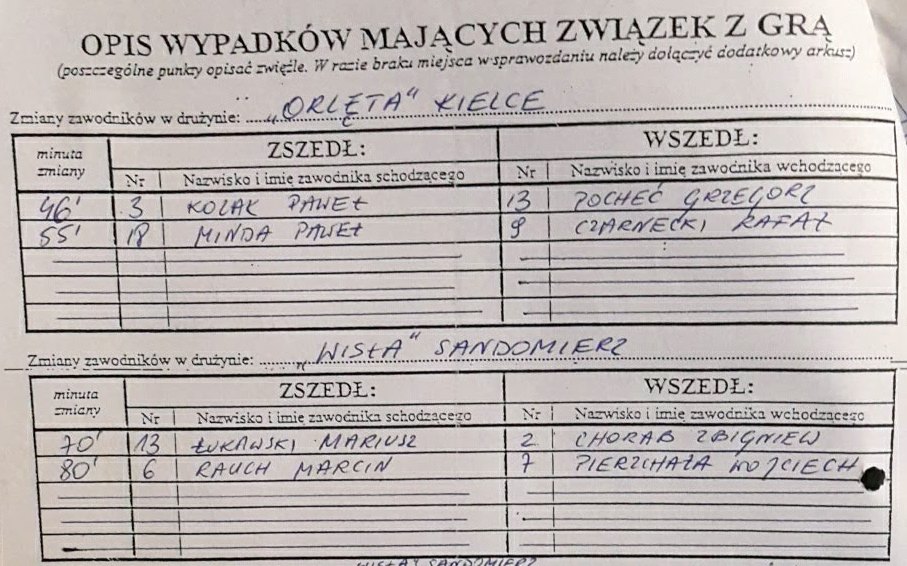 OPIS WYPADKÓW MAJĄCYCH ZWIĄZEK Z GRĄ
(poszczególne punkty opisać zwięźle. W razie braku miejsca w sprawozdaniu należy dołączyć dodatkowy arkusz)
Zmiany zawodników w drużynie: „ORLĘTA" KIELCE
minuta zmiany ZSZEDŁ: WSZEDŁ:
Nr Nazwisko i imię zawodnika schodzącego Nr Nazwisko i imię zawodnika wchodzącego
46' 3 KOZAK PAWEŁ 13 POCHEĆ GRZEGORZ
55' 18 MINDA PAWEŁ 9 CZARNECKI RAFAŁ
Zmiany zawodników w drużynie: „WISŁA" SANDOMIERZ
minuta zmiany ZSZEDŁ: WSZEDŁ:
Nr Nazwisko i imię zawodnika schodzącego Nr Nazwisko i imię zawodnika wchodzącego
70' 13 ŁUKAWSKI MARIUSZ 2 CHORAB ZBIGNIEW
80' 6 RAUCH MARCIN 7 PIERZCHAŁA WOJCIECH
WISŁA SANDOMIERZ